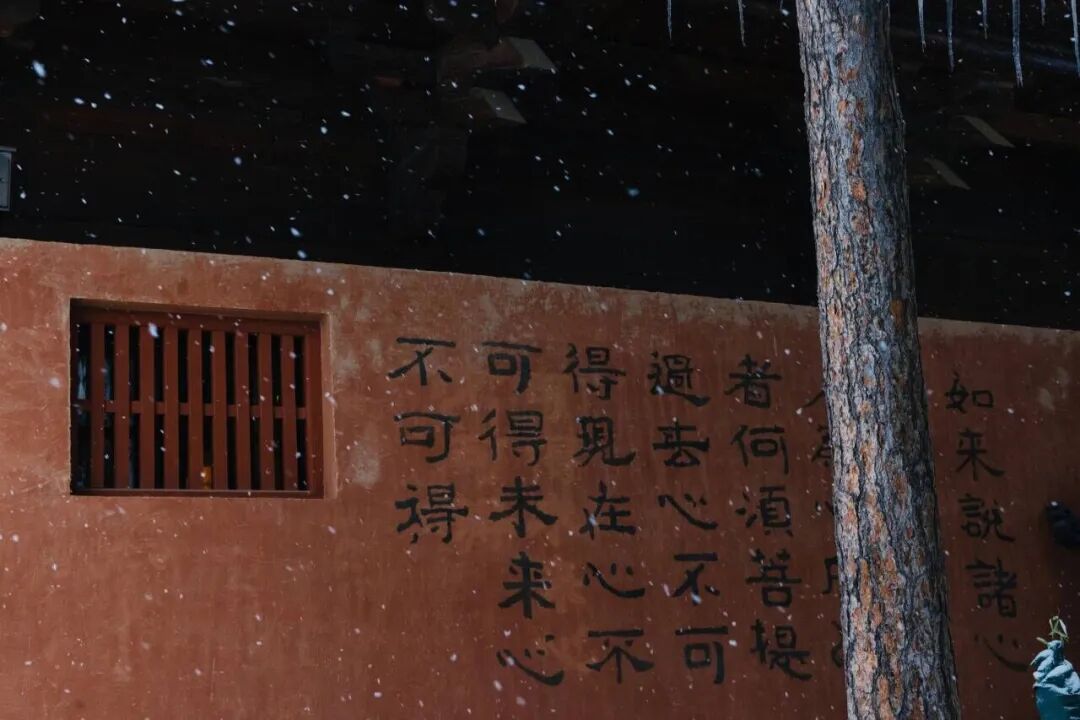 如来説諸心
為心
者何須菩提
過去心不可
得現在心不
可得未来心
不可得